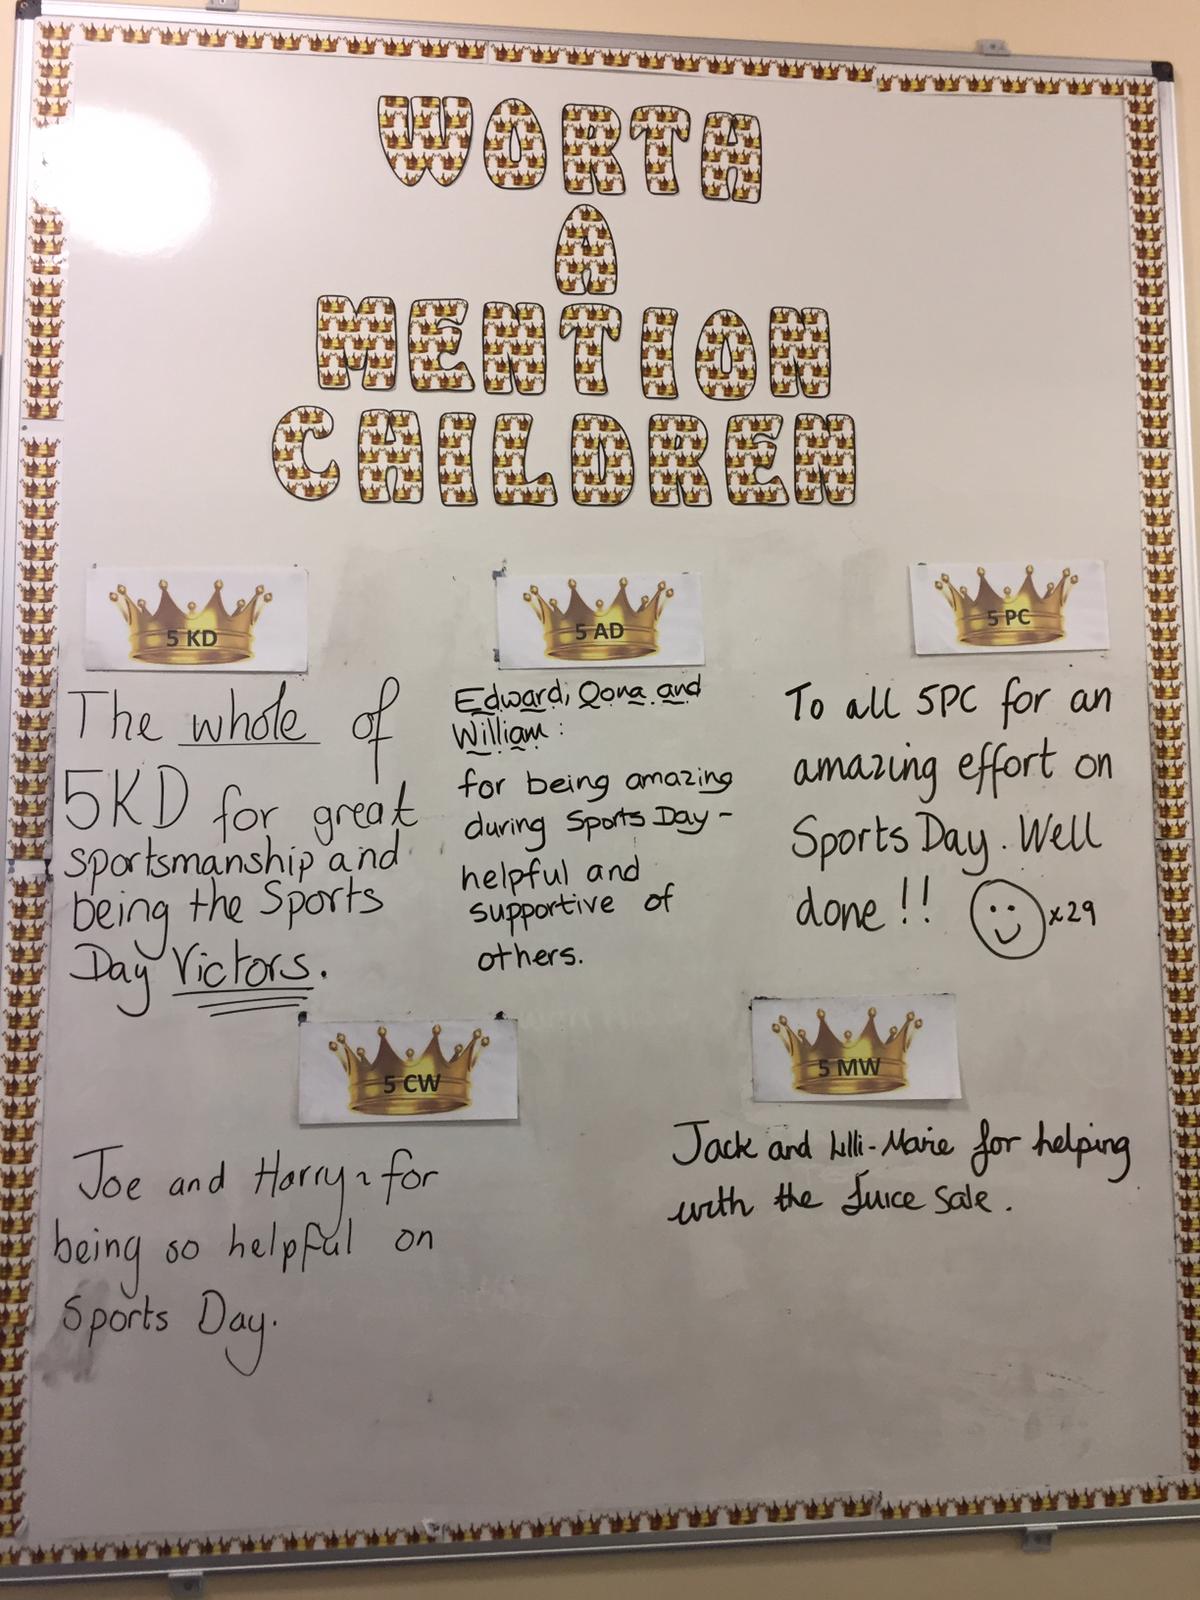 WORTH
A
MENTION
CHILDREN
5 KD
The whole of
5KD for great
sportsmanship and
being the Sports
Day Victors.
5 AD
Edward, Qona and
William:
for being amazing
during Sports Day -
helpful and
supportive of
others.
5 PC
To all 5PC for an
amazing effort on
Sports Day. Well
done!! x29
5 CW
Joe and Harry - for
being so helpful on
Sports Day.
5 MW
Jack and Lilli-Marie for helping
with the Juice Sale.